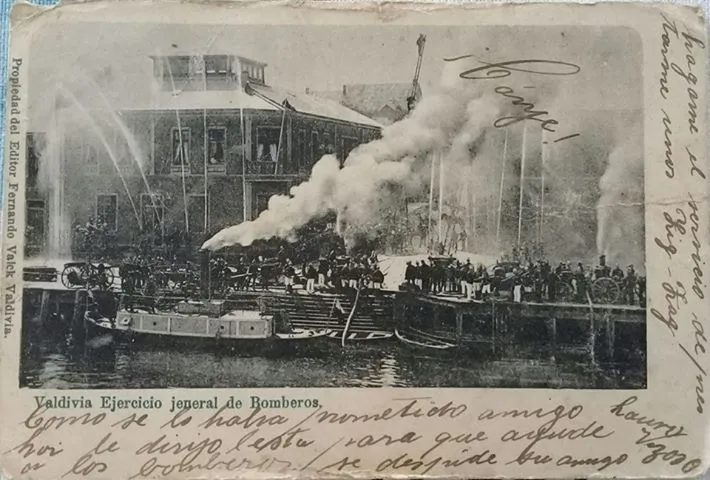 Propiedad del Editor Fernando Valck Valdivia.
Valdivia Ejercicio jeneral de Bomberos.
Como se lo habia prometido amigo
hoi le dirijo esta para que ayude
a los bomberos se despide su amigo
hagame el servicio de
unos Zig-Zag